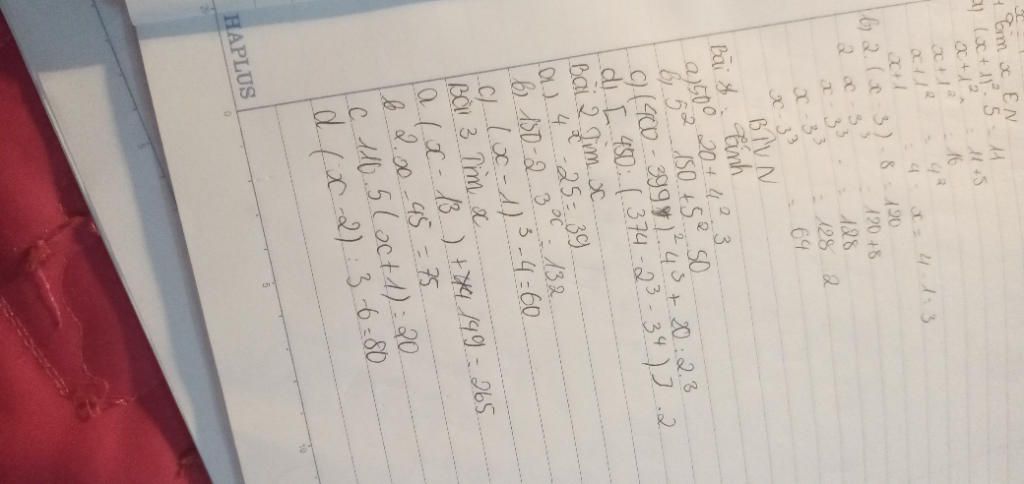 Tìm x ∈ N
a) (x+1)² 5 = 11
(x+1)² = 11+5
x+1² = 16
x+1² = 4²
x+1 = 4 x = 4 1 = 3
b, 2. (x - 3) 8 = 120
2 x - 3³ = 120+8
x - 3³ = 128
x - 3³ = 128 2
x - 3³ = 64
BTVN
Bài 1: Tính
a) 50 20 + 4² 3
b, 5² 150 + 5² 50
c) (400 - 399)² 4³ + 20 : 2.³
d, [ 480 : ( 374 - 2³ - 3⁴ ) ] .2
Bài 2 Tìm x
a, 4 x - 25 = 39
b, 150 - 2 3ˣ - 132
c) (x - 1)³ - 4 = 60
Bài 3 Tìm x
a (x - 13) + 149 = 265
b 2.x 45 = 75
c 110. 5 (x+1) = 20
d (x 2) : 3 - 6 = 80
HAPLUS
0
5
10